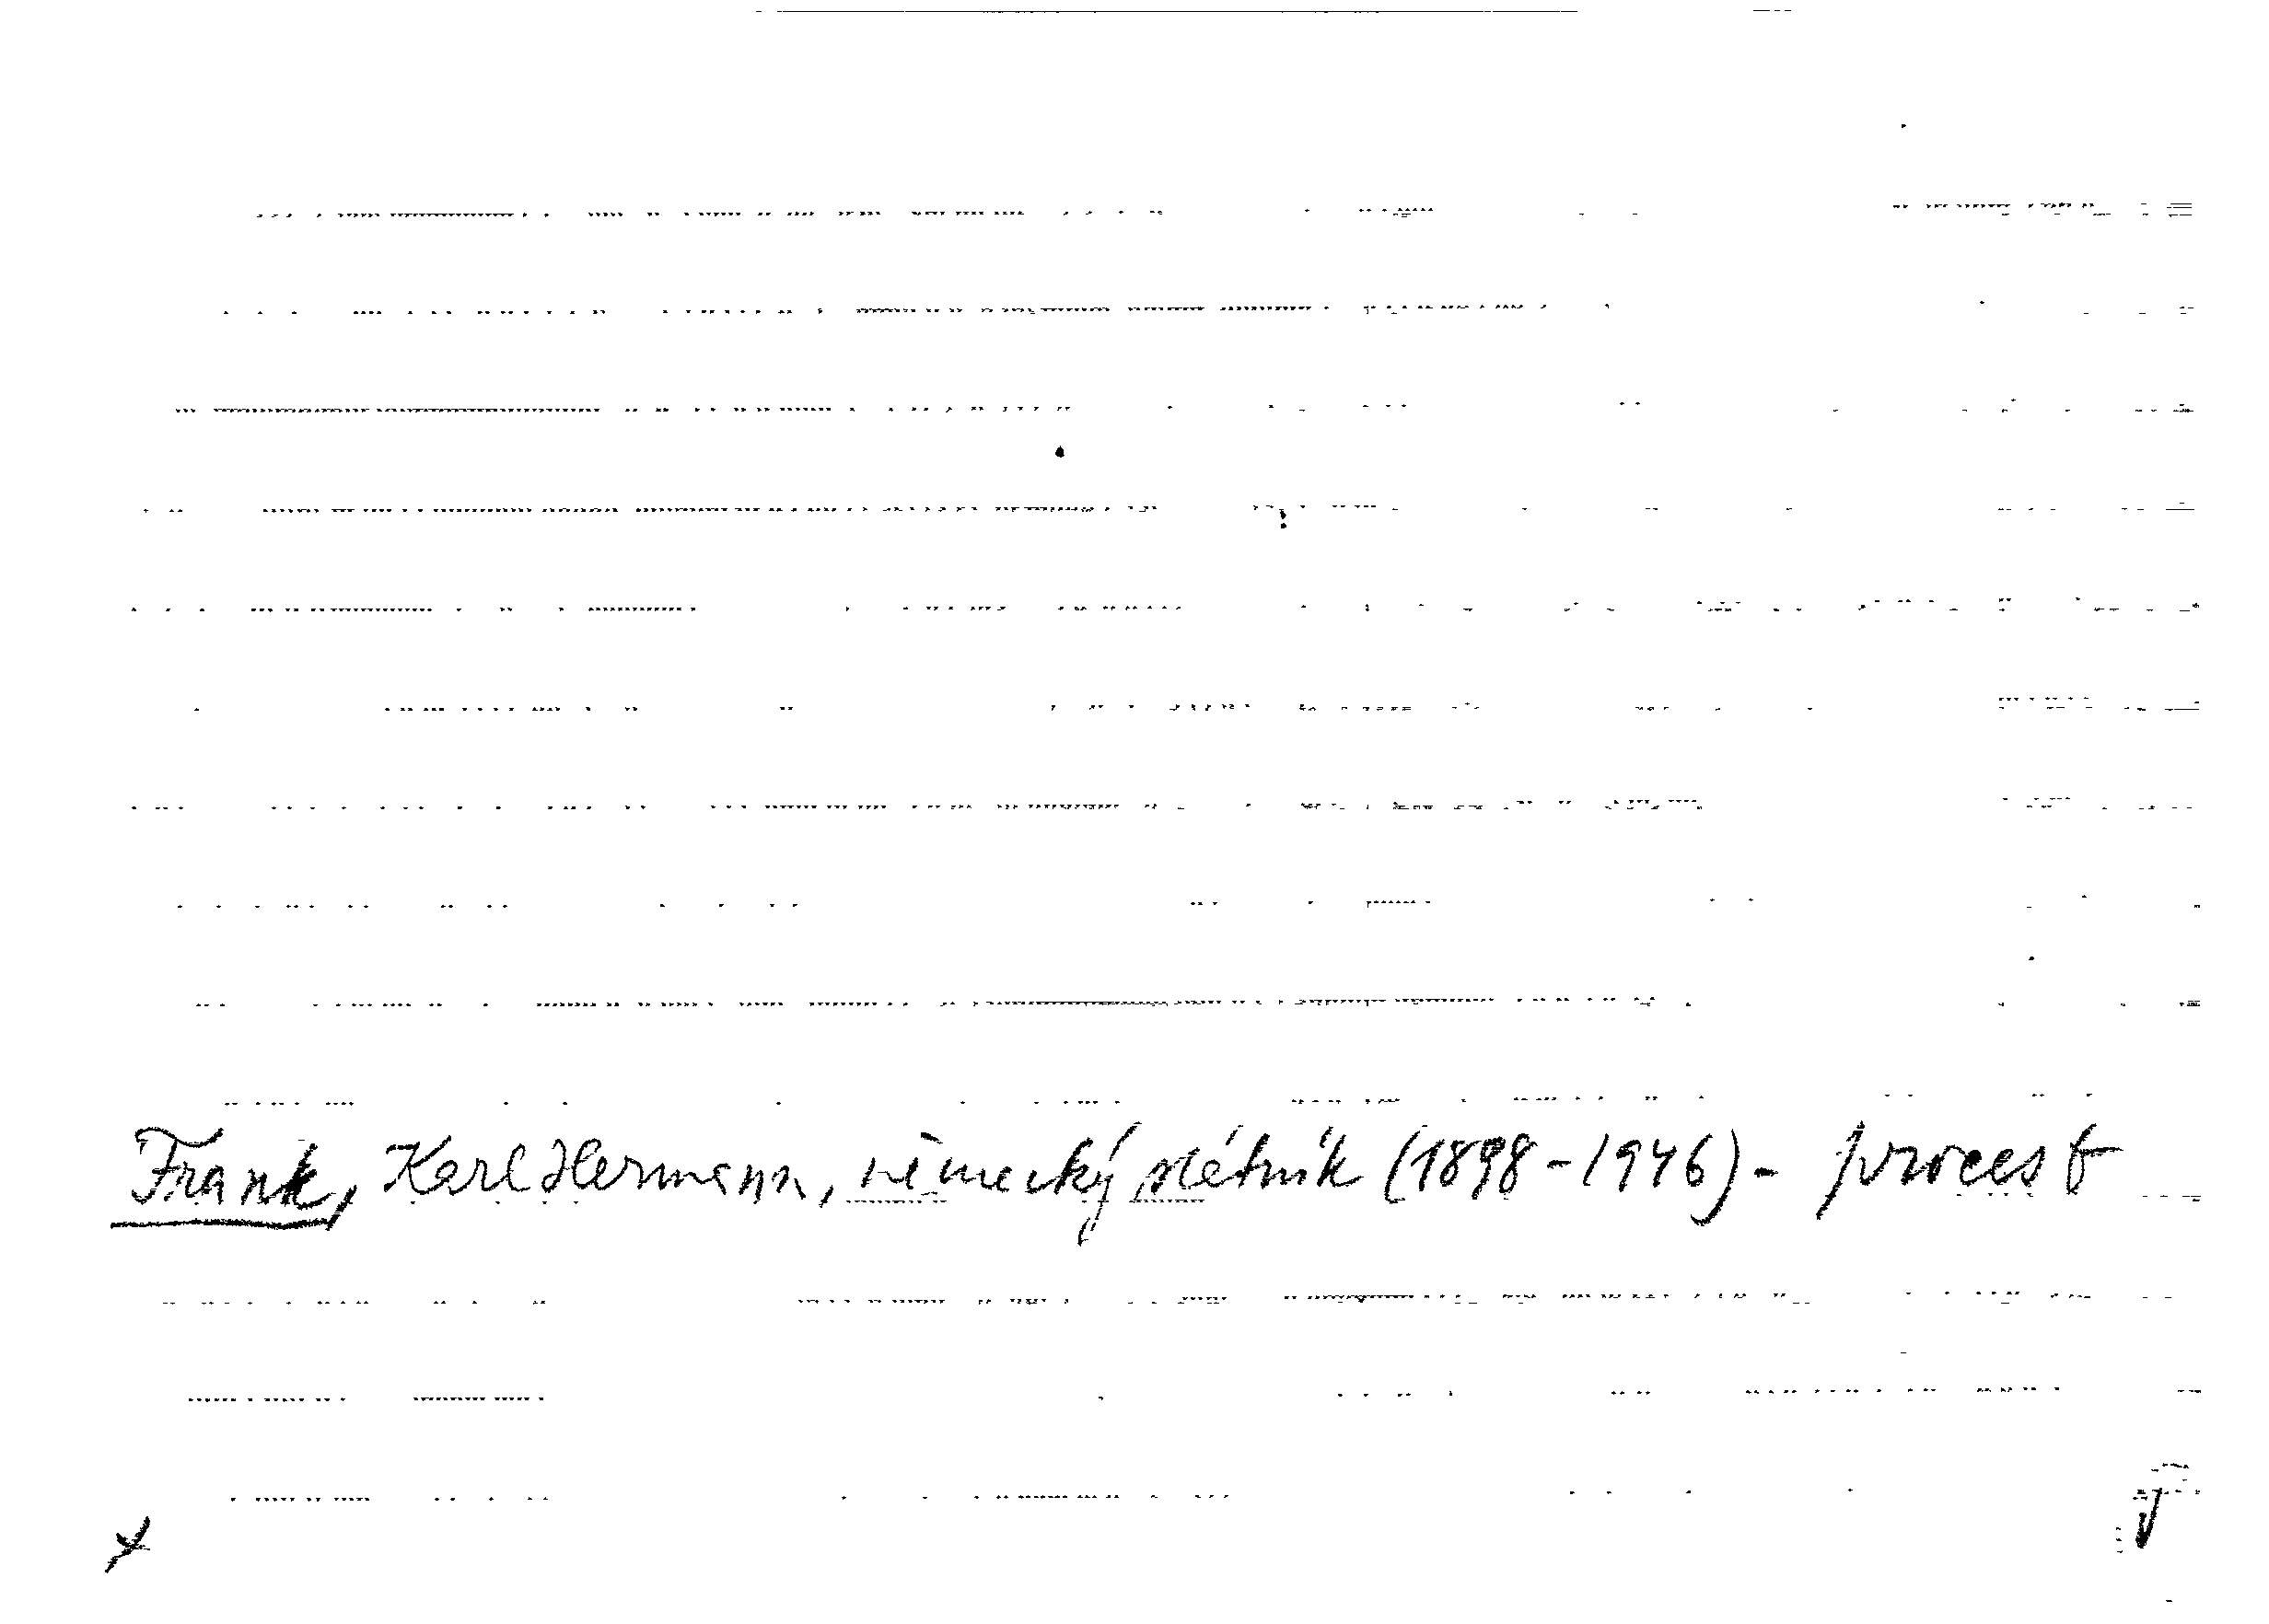 Frank, Karl Hermann, německý státník (1898-1946) - proces t